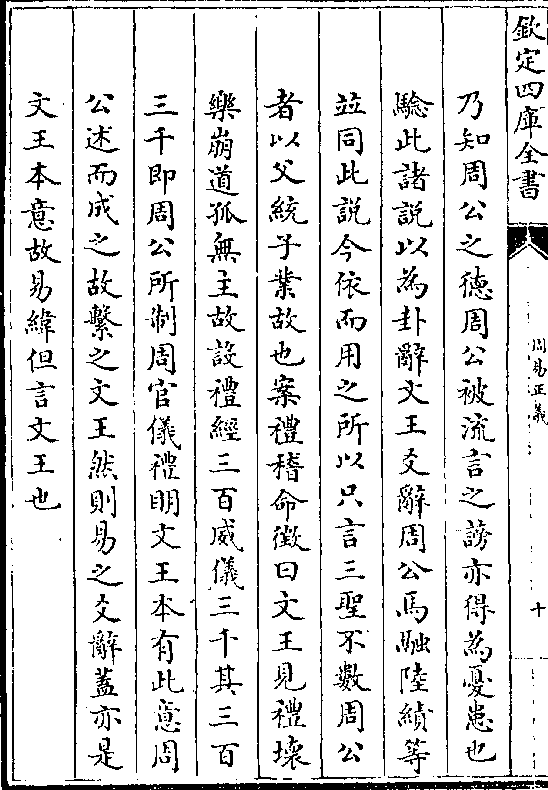 欽定四庫全書
周易正義
十
乃知周公之德周公被流言之謗亦得為憂患也
驗此諸說以為卦辭文王爻辭周公馬融陸績等
竝同此說今依而用之所以只言三聖不數周公
者以父統子業故也案禮稽命徵曰文王見禮壞
樂崩道孤無主故設禮經三百威儀三千其三百
三千即周公所制周官儀禮明文王本有此意周
公述而成之故繫之文王然則易之爻辭蓋亦是
文王本意故易緯但言文王也